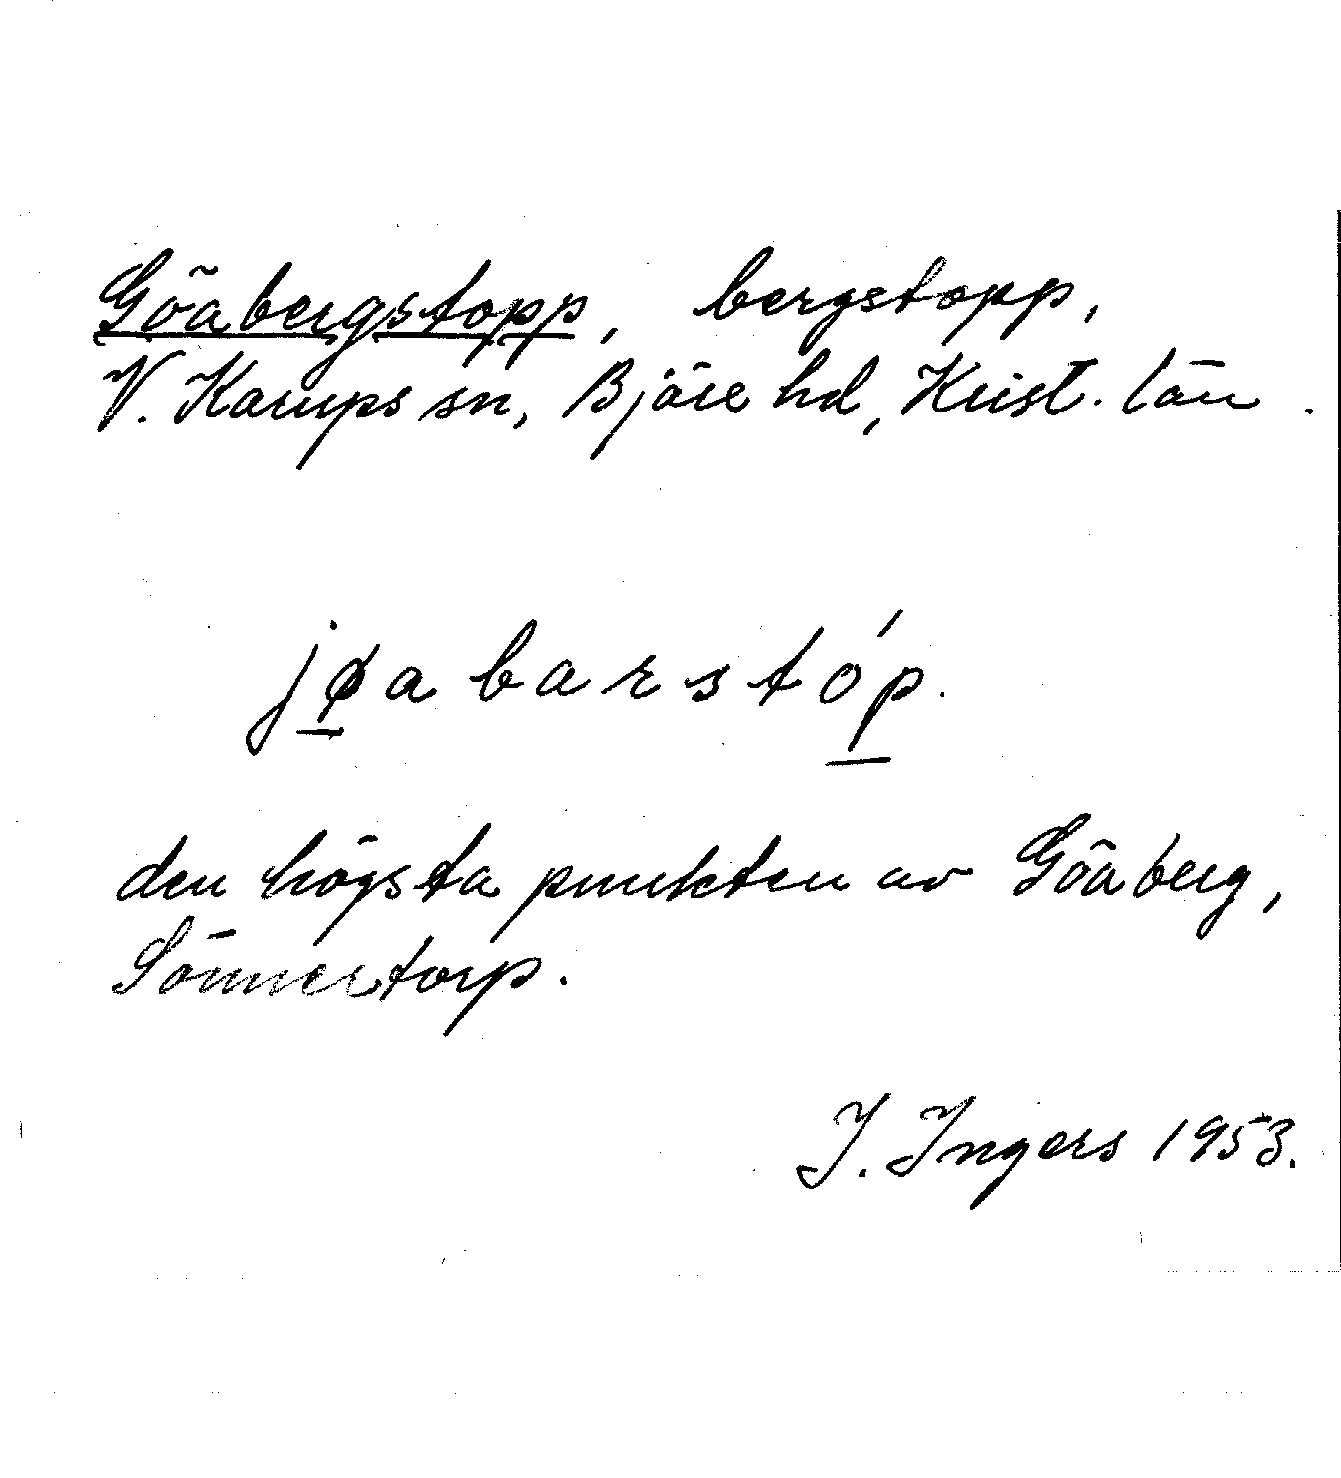 Göabergstopp, bergstopp,
V. Karups sn, Bjäre hd, Krist. län.
jøabarstóp.
den högsta punkten av Göaberg,
Sönnertorp.
I. Ingers 1953.